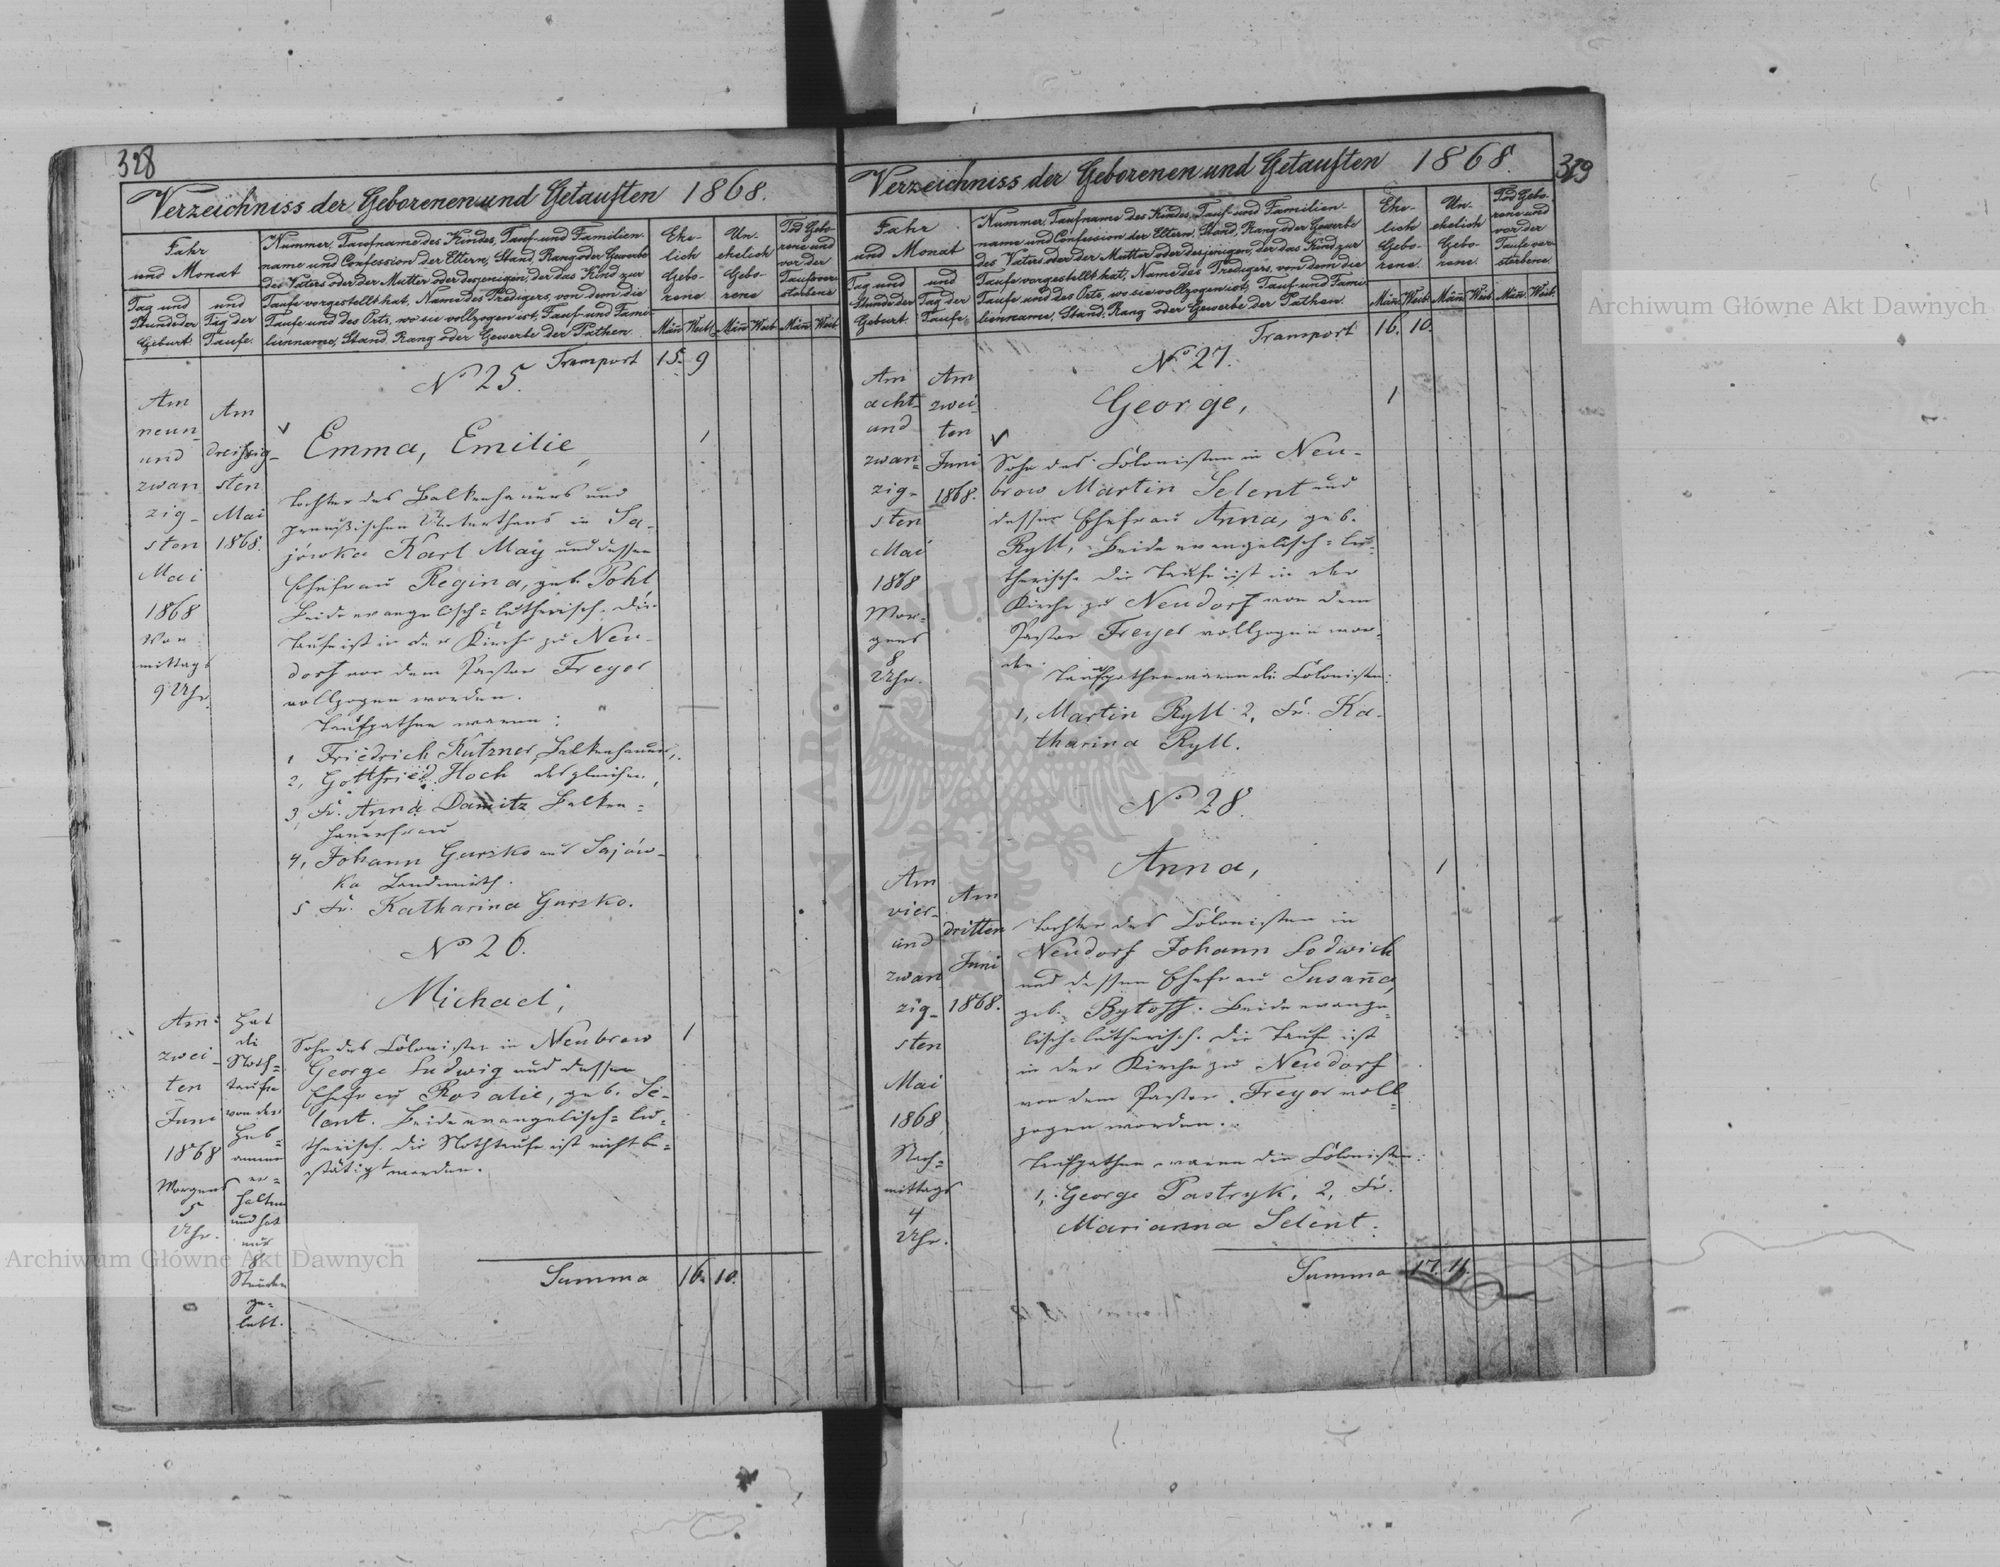 328
Verzeichniss der Geborenen und Getauften 1868.
Jahr
und Monat
Tag und
Stunde der
Geburt
und
Tag der
Taufe.
Nummer, Taufname des Kindes, Tauf- und Familien-
name und Confession der Eltern, Stand, Rang oder Gewerbe
des Vaters oder der Mutter oder desjenigen, der das Kind zur
Taufe vorgestellt hat, Name des Predigers, von dem die
Taufe und des Orts, wo sie vollzogen ist, Tauf- und Fami-
lienname, Stand, Rang oder Gewerbe der Pathen.
Ehe-
lich
Gebo-
rene
Un-
ehelich
Gebo-
rene
Tod Gebo-
rene und
vor der
Taufe ver-
storbene
Män̄ Weib. Män̄ Weib. Män̄ Weib.
Transport 15. 9
No 25.
Am
neun-
und
zwan
zig-
sten
Mai
1868
Vor
mittags
9 Uhr.
Am
dreißig-
sten
Mai
1868.
Emma, Emilie, 1
Tochter des Balkenhauers und
preußischen Unterthans in Sa-
jówka Karl May und dessen
Ehefrau Regina, geb. Pohl
Beide evangelisch-lutherisch. Die
Taufe ist in der Kirche zu Neu-
dorf von dem Pastor Freyer
vollzogen worden.
Taufpathen waren:
1 Friedrich Kutzner, Balkenhauer,
2, Gottfried Hoch desgleichen,
3, Fr. Anna Damitz Balken=
hauerfrau
4, Johann Gurzko aus Sajów-
ka Landwirth.
5 Fr. Katharina Gurzko.
No 26.
Michael,
Am
zwei-
ten
Juni
1868
Morgens
5
Uhr.
Hat
die
Noth-
taufe
von der
Heb-
amme
er-
halten
und hat
nur
8
Stunden
ge-
lebt.
Sohn des Colonisten in Neubrow 1
George Ludwig und dessen
Ehefrau Rosalie, geb. Se-
lent. Beide evangelisch=lu-
therisch. Die Nothtaufe ist nicht be-
stätigt worden.
Summa 16. 10.
329
Verzeichniss der Geborenen und Getauften 1868.
Jahr
und Monat
Tag und
Stunde der
Geburt
und
Tag der
Taufe.
Nummer, Taufname des Kindes, Tauf- und Familien-
name und Confession der Eltern, Stand, Rang oder Gewerbe
des Vaters oder der Mutter oder desjenigen, der das Kind zur
Taufe vorgestellt hat, Name des Predigers, von dem die
Taufe und des Orts, wo sie vollzogen ist, Tauf- und Fami-
lienname, Stand, Rang oder Gewerbe der Pathen.
Ehe-
lich
Gebo-
rene.
Un-
ehelich
Gebo-
rene.
Tod Gebo-
rene und
vor der
Taufe ver-
storbene.
Män̄ Weib. Män̄ Weib. Män̄ Weib.
Transport 16. 10.
No 27.
Am
acht-
und
zwan-
zig-
sten
Mai
1868
Mor-
gens
8
Uhr.
Am
zwei-
ten
Juni
1868.
George, 1
Sohn des Colonisten in Neu-
brow Martin Selent und
dessen Ehefrau Anna, geb.
Ryll, Beide evangelisch=lu-
therisch. Die Taufe ist in der
Kirche zu Neudorf von dem
Pastor Freyer vollzogen wor-
den.
Taufpathen waren die Colonisten:
1, Martin Ryll 2, Fr. Ka-
tharina Ryll.
No 28.
Anna, 1
Am
vier-
und
zwan
zig-
sten
Mai
1868
Nach-
mittags
4
Uhr.
Am
dritten
Juni
1868.
Tochter des Colonisten in
Neudorf Johann Lodwich
und dessen Ehefrau Susan̄a,
geb. Bytoff. Beide evange-
lisch=lutherisch. Die Taufe ist
in der Kirche zu Neudorf
von dem Pastor Freyer voll-
zogen worden.
Taufpathen waren die Colonisten:
1, George Pastryk, 2, Fr.
Marianna Selent.
Summa 17. 11.
Archiwum Główne Akt Dawnych
Archiwum Główne Akt Dawnych